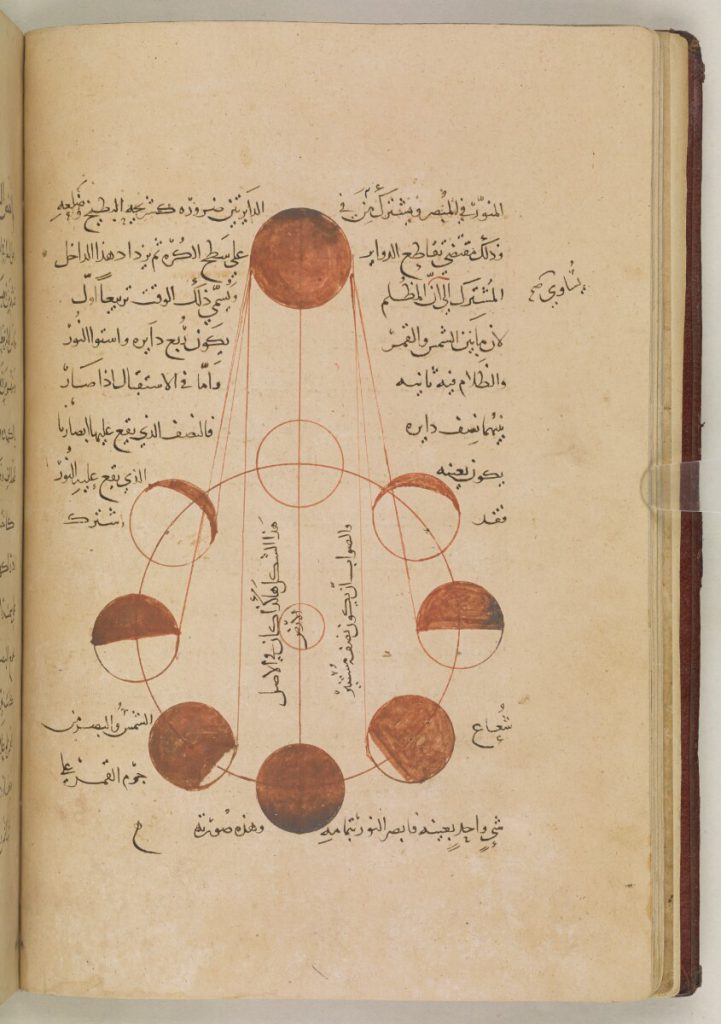 المنوّر في المبصر ويشترك من في الدايرتين ضروره كشريجه البطيخ وضلعه
وذلك مقتضى تقاطع الدواير على سطح الكره ثم يزداد هذا الداخل
المشترك الى انّ المظلم ويُسمّى ذلك الوقت تربيعاً اول
يُساوي صح
لان ما بين الشمس والقمر يكون رُبع دايره واستوا النور
والظلام فيه ثانيه وامّا في الاستقبال اذا صار
بينهما نصف دايره فالنصف الذي يقع عليها ابصارنا
يكون بعينه الذي يقع عليه النور
فقد اشترك
هذا الشكل هكذا كان في الاصل
الارض
والصواب أن يكون نصفه مستنير
شُعاع الشمس والبصر من
جرم القمر على
شيءٍ واحدٍ بعينه فابصر النور بتمامه وهذه صُورته